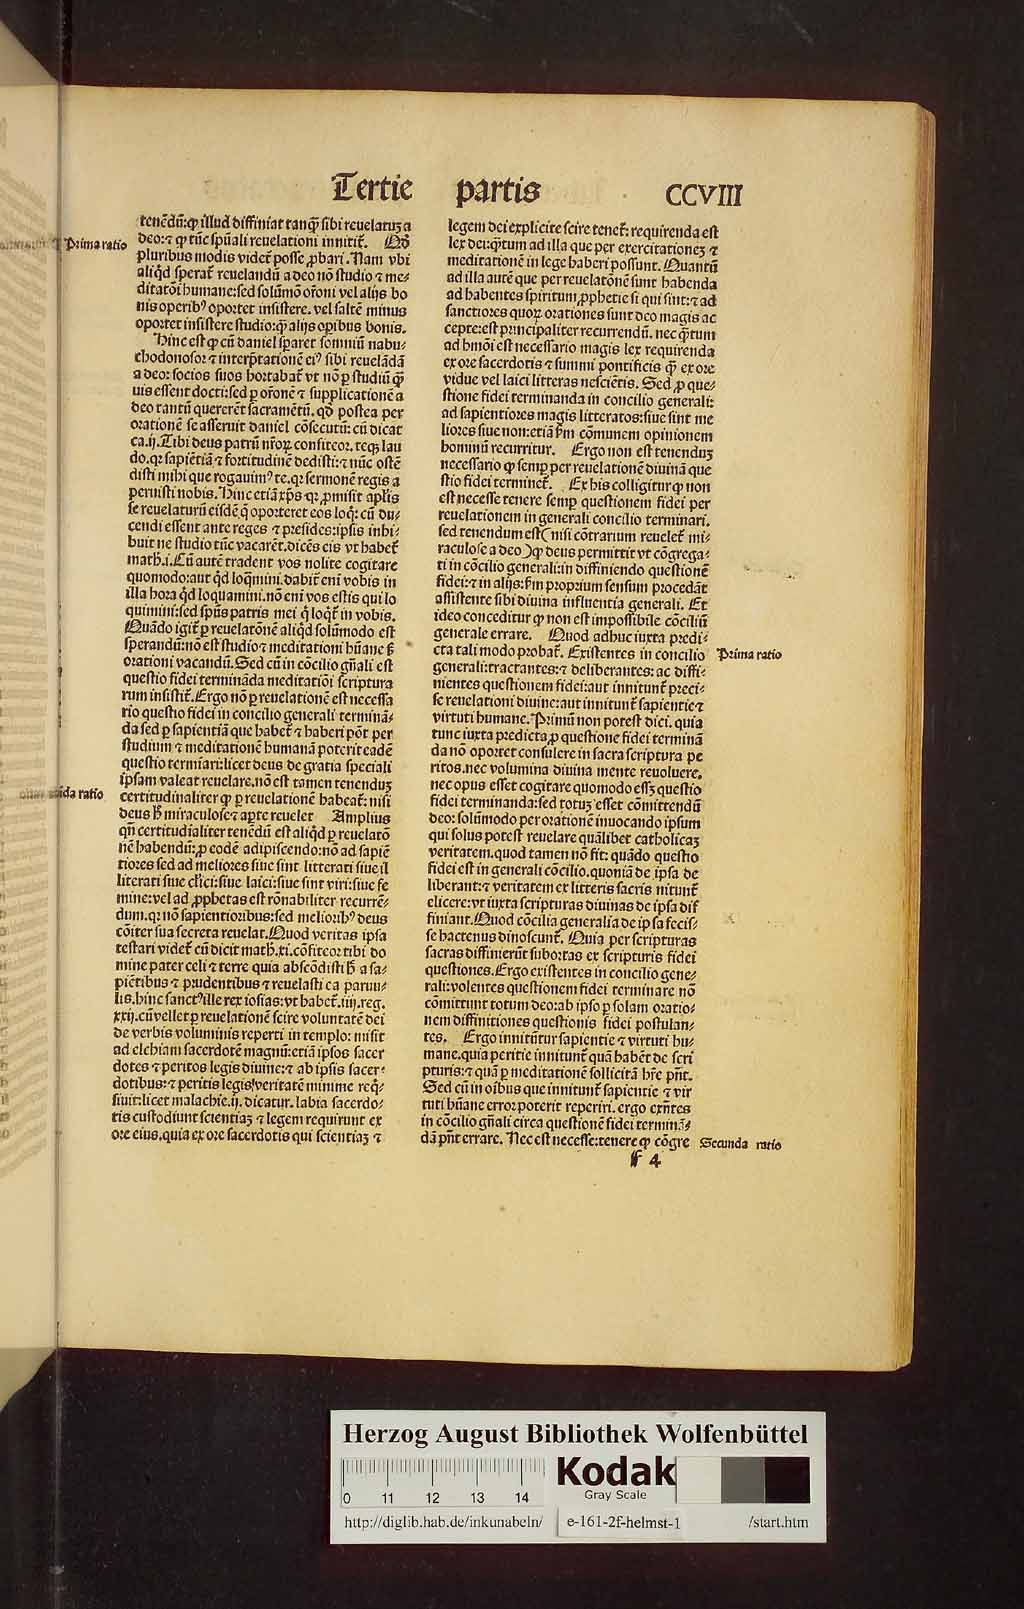 Tertie partis CCVIII
tenēdū:ꝙ illud diffiniat tanq̄ sibi reuelatuꝫ a
deo:⁊ ꝙ tūc spūali reuelationi innitit̄. Qd̄
Prima ratio
pluribus modis videt̄ posse ꝓbari. Nam vbi
aliq̇d sperat̄ reuelandū a deo nō studio ⁊ me-
ditatōi humane:sed solūmō or̄oni vel alijs bo
nis operibꝰ oportet insistere. vel saltē minus
oportet insistere studio:q̄ȝ alijs oꝑibus bonis.
Hinc est ꝙ cū daniel sꝑaret somniū nabu-
chodonosor ⁊ interp̄tationē eiꝰ sibi reuelādā
a deo: socios suos hortabat̄ vt nō ꝑ studiū q̄ȝ
uis essent docti:sed ꝑ or̄onē ⁊ supplicationē a
deo tantū quererēt sacramētū. qd̄ postea per
orationē se asseruit daniel cōsecutū: cū dicat
ca.ij. Tibi deus patrū nr̄oꝝ confiteor. teqꝫ lau
do. qꝛ sapiētiā ⁊ fortitudinē dedisti:⁊ nūc ostē
disti mihi que rogauimꝰ te. qꝛ sermonē regis a
peruisti nobis. Hinc etiā xp̄s qꝛ ꝓmisit apl̄is
se reuelaturū eisdē q̇ oporteret eos loq̇: cū du-
cendi essent ante reges ⁊ presides:ipsis inhi-
buit ne studio tūc vacarēt. dicēs eis vt habet̄
math.i. Cū autē tradent vos nolite cogitare
quomodo:aut q̇d loq̄mini. dabit̄ eni vobis in
illa hora q̇d loquamini. nō eni vos estis qui lo
quimini:sed spūs patris mei q̇ loq̇t̄ in vobis.
Quādo igit̄ ꝑ reuelatōnē aliq̇d solūmodo est
sperandū:nō est studio ⁊ meditationi hūane sꝫ
orationi vacandū. Sed cū in cōcilio gn̄ali est
questio fidei termināda meditatiōi scriptura
rum insistit̄. Ergo nō ꝑ reuelationē est necessa
rio questio fidei in concilio generali terminā-
da sed ꝑ sapientiā que habet̄ ⁊ haberi pōt per
studium ⁊ meditationē humanā poterit eadē
questio termiari:licet deus de gratia speciali
ipsam valeat reuelare. nō est tamen tenenduꝫ
certitudinaliter ꝙ ꝑ reuelationē habeat̄: nisi
deus ħ miraculose ⁊ aꝑte reuelet Amplius
qn̄ certitudīaliter tenēdū est aliq̇d ꝑ reuelatō
nē habendū:ꝓ eodē adipiscendo:nō ad sapiē
tiores sed ad meliores siue sint litterati siue il
literati siue cl̄ici:siue laici:siue sint viri:siue fe
mine:vel ad ꝓphetas est rōnabiliter recurrē-
dum. qꝛ nō sapientioribus:sed melioribꝰ deus
cōiter sua secreta reuelat. Quod veritas ipsa
testari videt̄ cū dicit math.xi. cōfiteor tibi do
mine pater celi ⁊ terre quia abscōdisti ħ a sa-
piētibus ⁊ prudentibus ⁊ reuelasti ea paruu-
lis. hinc sanctꝰ ille rex iosias: vt habet̄.iiij.reg.
xxij. cū vellet ꝑ reuelationē scire voluntatē dei
de verbis voluminis reperti in templo: misit
ad elchiam sacerdotē magnū:etiā ipsos sacer
dotes ⁊ peritos legis diuine:⁊ ab ipsis sacer-
dotibus:⁊ peritis legis veritatē minime req̇-
siuit:licet malachie.ij. dicatur. labia sacerdo-
tis custodiunt scientiaꝫ ⁊ legem requirunt ex
ore eius. quia ex ore sacerdotis qui scientiaꝫ ⁊
legem dei explicite scire tenet̄: requirenda est
lex dei:q̄tum ad illa que per exercitationeꝫ ⁊
meditationē in lege haberi possunt. Quantū
ad illa autē que per reuelatōnē sunt habenda
ad habentes spiritum ꝓphetie si qui sint:⁊ ad
sanctiores quoꝝ orationes sunt deo magis ac
cepte:est principaliter recurrendū. nec q̄tum
ad hmōi est necessario magis lex requirenda
ex ore sacerdotis ⁊ summi pontificis q̄ȝ ex ore
vidue vel laici litteras nesciētis. Sed ꝓ que-
stione fidei terminanda in concilio generali:
ad sapientiores magis litteratos:siue sint me
liores siue non:etiā ẜm cōmunem opinionem
hominū recurritur. Ergo non est tenenduꝫ
necessario ꝙ semꝑ per reuelationē diuinā que
stio fidei terminet̄. Ex his colligitur ꝙ non
est necesse tenere semꝑ questionem fidei per
reuelationem in generali concilio terminari.
sed tenendum est(nisi cōtrarium reuelet̄ mi-
raculose a deo)ꝙ deus permittit vt cōgrega-
ti in cōcilio generali:in diffiniendo questionē
fidei:⁊ in alijs:ẜm proprium sensum procedāt
assistente sibi diuina influentia generali. Et
ideo conceditur ꝙ non est impossibile cōciliū
generale errare. Quod adhuc iuxta predi-
cta tali modo probat̄. Existentes in concilio
Prima ratio
generali:tractantes:⁊ deliberantes: ac diffi-
nientes questionem fidei:aut innitunt̄ preci-
se reuelationi diuine:aut innitunt̄ sapientie ⁊
virtuti humane. Primū non potest dici. quia
tunc iuxta predicta ꝓ questione fidei terminā
da nō oportet consulere in sacra scriptura pe
ritos. nec volumina diuina mente reuoluere.
nec opus esset cogitare quomodo essꝫ questio
fidei terminanda:sed totuꝫ esset cōmittendū
deo:solūmodo per orationē inuocando ipsum
qui solus potest reuelare quālibet catholicaꝫ
veritatem. quod tamen nō fit: quādo questio
fidei est in generali cōcilio. quoniā de ipsa de
liberant:⁊ veritatem ex litteris sacris nitunt̄
elicere:vt iuxta scripturas diuinas de ipsa dif
finiant. Quod cōcilia generalia de ipsa fecis-
se hactenus dinoscunt̄. Quia per scripturas
sacras diffinierūt subortas ex scripturis fidei
questiones. Ergo existentes in concilio gene-
rali:volentes questionem fidei terminare nō
cōmittunt totum deo:ab ipso ꝑ solam oratio-
nem diffinitiones questionis fidei postulan-
tes. Ergo innitūtur sapientie ⁊ virtuti hu-
mane. quia peritie innitunt̄ quā habēt de scri
pturis:⁊ quā ꝑ meditationē sollicitā hr̄e pn̄t.
Sed cū in oībus que innitunt̄ sapientie ⁊ vir
tuti hūane error poterit reperiri. ergo exn̄tes
in cōcilio gn̄ali circa questionē fidei terminā-
dā pn̄t errare. Nec est necesse:tenere ꝙ cōgre
Secunda ratio
ff 4
Herzog August Bibliothek Wolfenbüttel
Kodak
Gray Scale
0 11 12 13 14
http://diglib.hab.de/inkunabeln/ e-161-2f-helmst-1 /start.htm